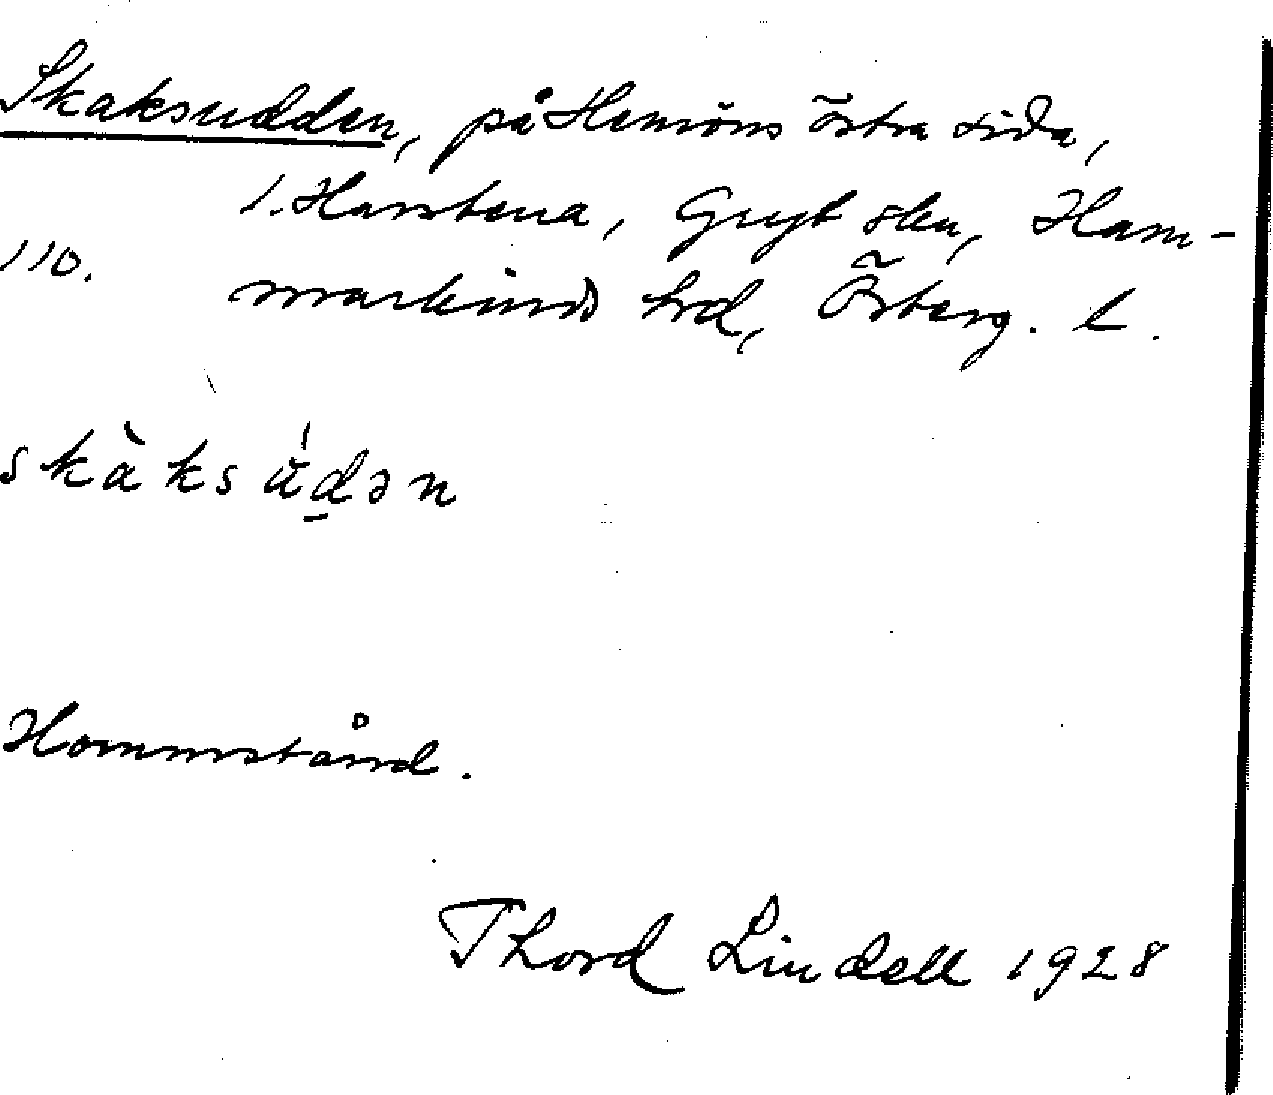 Skaksudden, på Hemöns östra sida,
1. Harstena, Gryt skn, Ham-
110. markinds hrd, Österg. L.
skàksúdən
Hommstånd.
Thord Lindell 1928